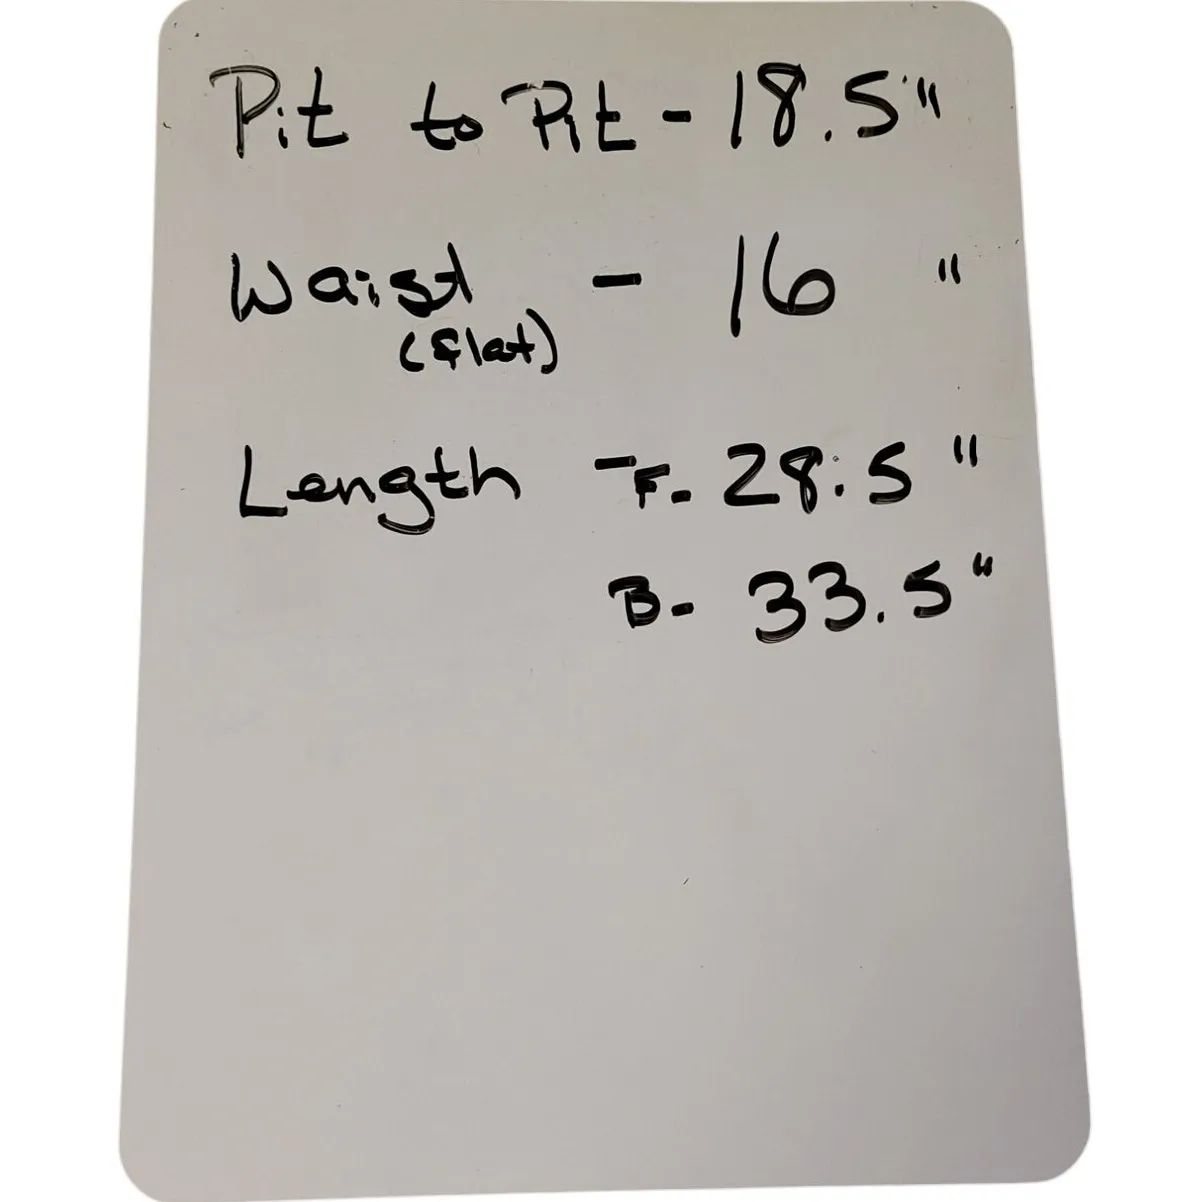 Pit to Pit - 18.5"
Waist - 16 "
(flat)
Length - F. 28.5"
B- 33.5"